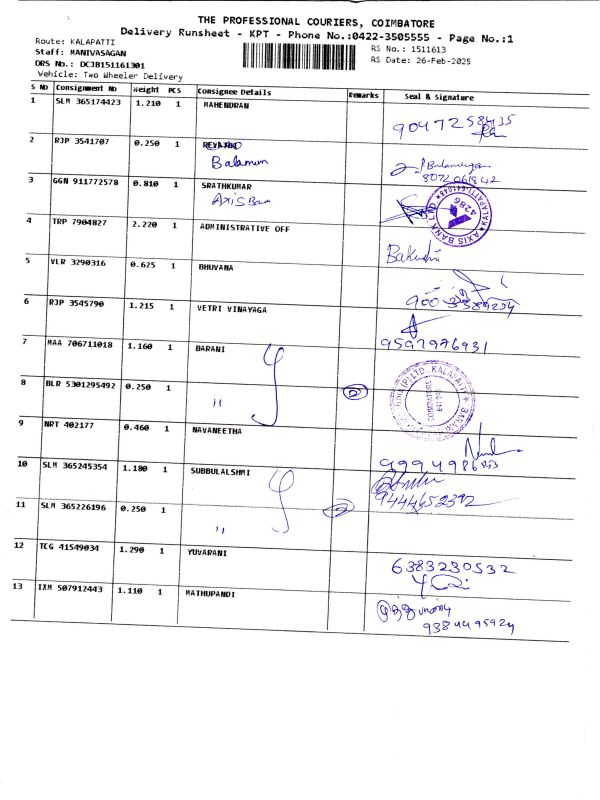 THE PROFESSIONAL COURIERS, COIMBATORE
Delivery Runsheet - KPT - Phone No.:0422-3505555 - Page No.:1
Route: KALAPATTI
RS No.: 1511613
Staff: MANIVASAGAN
RS Date: 26-Feb-2025
DRS No.: DCJB151161301
Vehicle: Two Wheeler Delivery
S No Consignment No Weight PCS Consignee Details Remarks Seal & Signature
1 SLM 365174423 1.210 1 MAHENDRAN
9047258435
2 RJP 3541707 0.250 1 REVATHI
Balamurn
8072061842
3 GGN 911772578 0.810 1 SRATHKUMAR
AXIS Ban
AXIS BANK KALAPATTI-641048 4786
4 TRP 7904827 2.220 1 ADMINISTRATIVE OFF
5 VLR 3290316 0.625 1 BHUVANA
6 RJP 3545790 1.215 1 VETRI VINAYAGA
9597976931
7 MAA 706711018 1.160 1 BARANI
(P) LTD, KALAPATTI BARANI COIMBATORE
8 BLR 5301295492 0.250 1 " 2
9 NRT 402177 0.460 1 NAVANEETHA
10 SLM 365245354 1.180 1 SUBBULALSHMI
9444652392
11 SLM 365226196 0.250 1 " 2
12 TCG 41549034 1.290 1 YUVARANI
6383230532
13 IXM 507912443 1.110 1 MATHUPANDI
9384495924